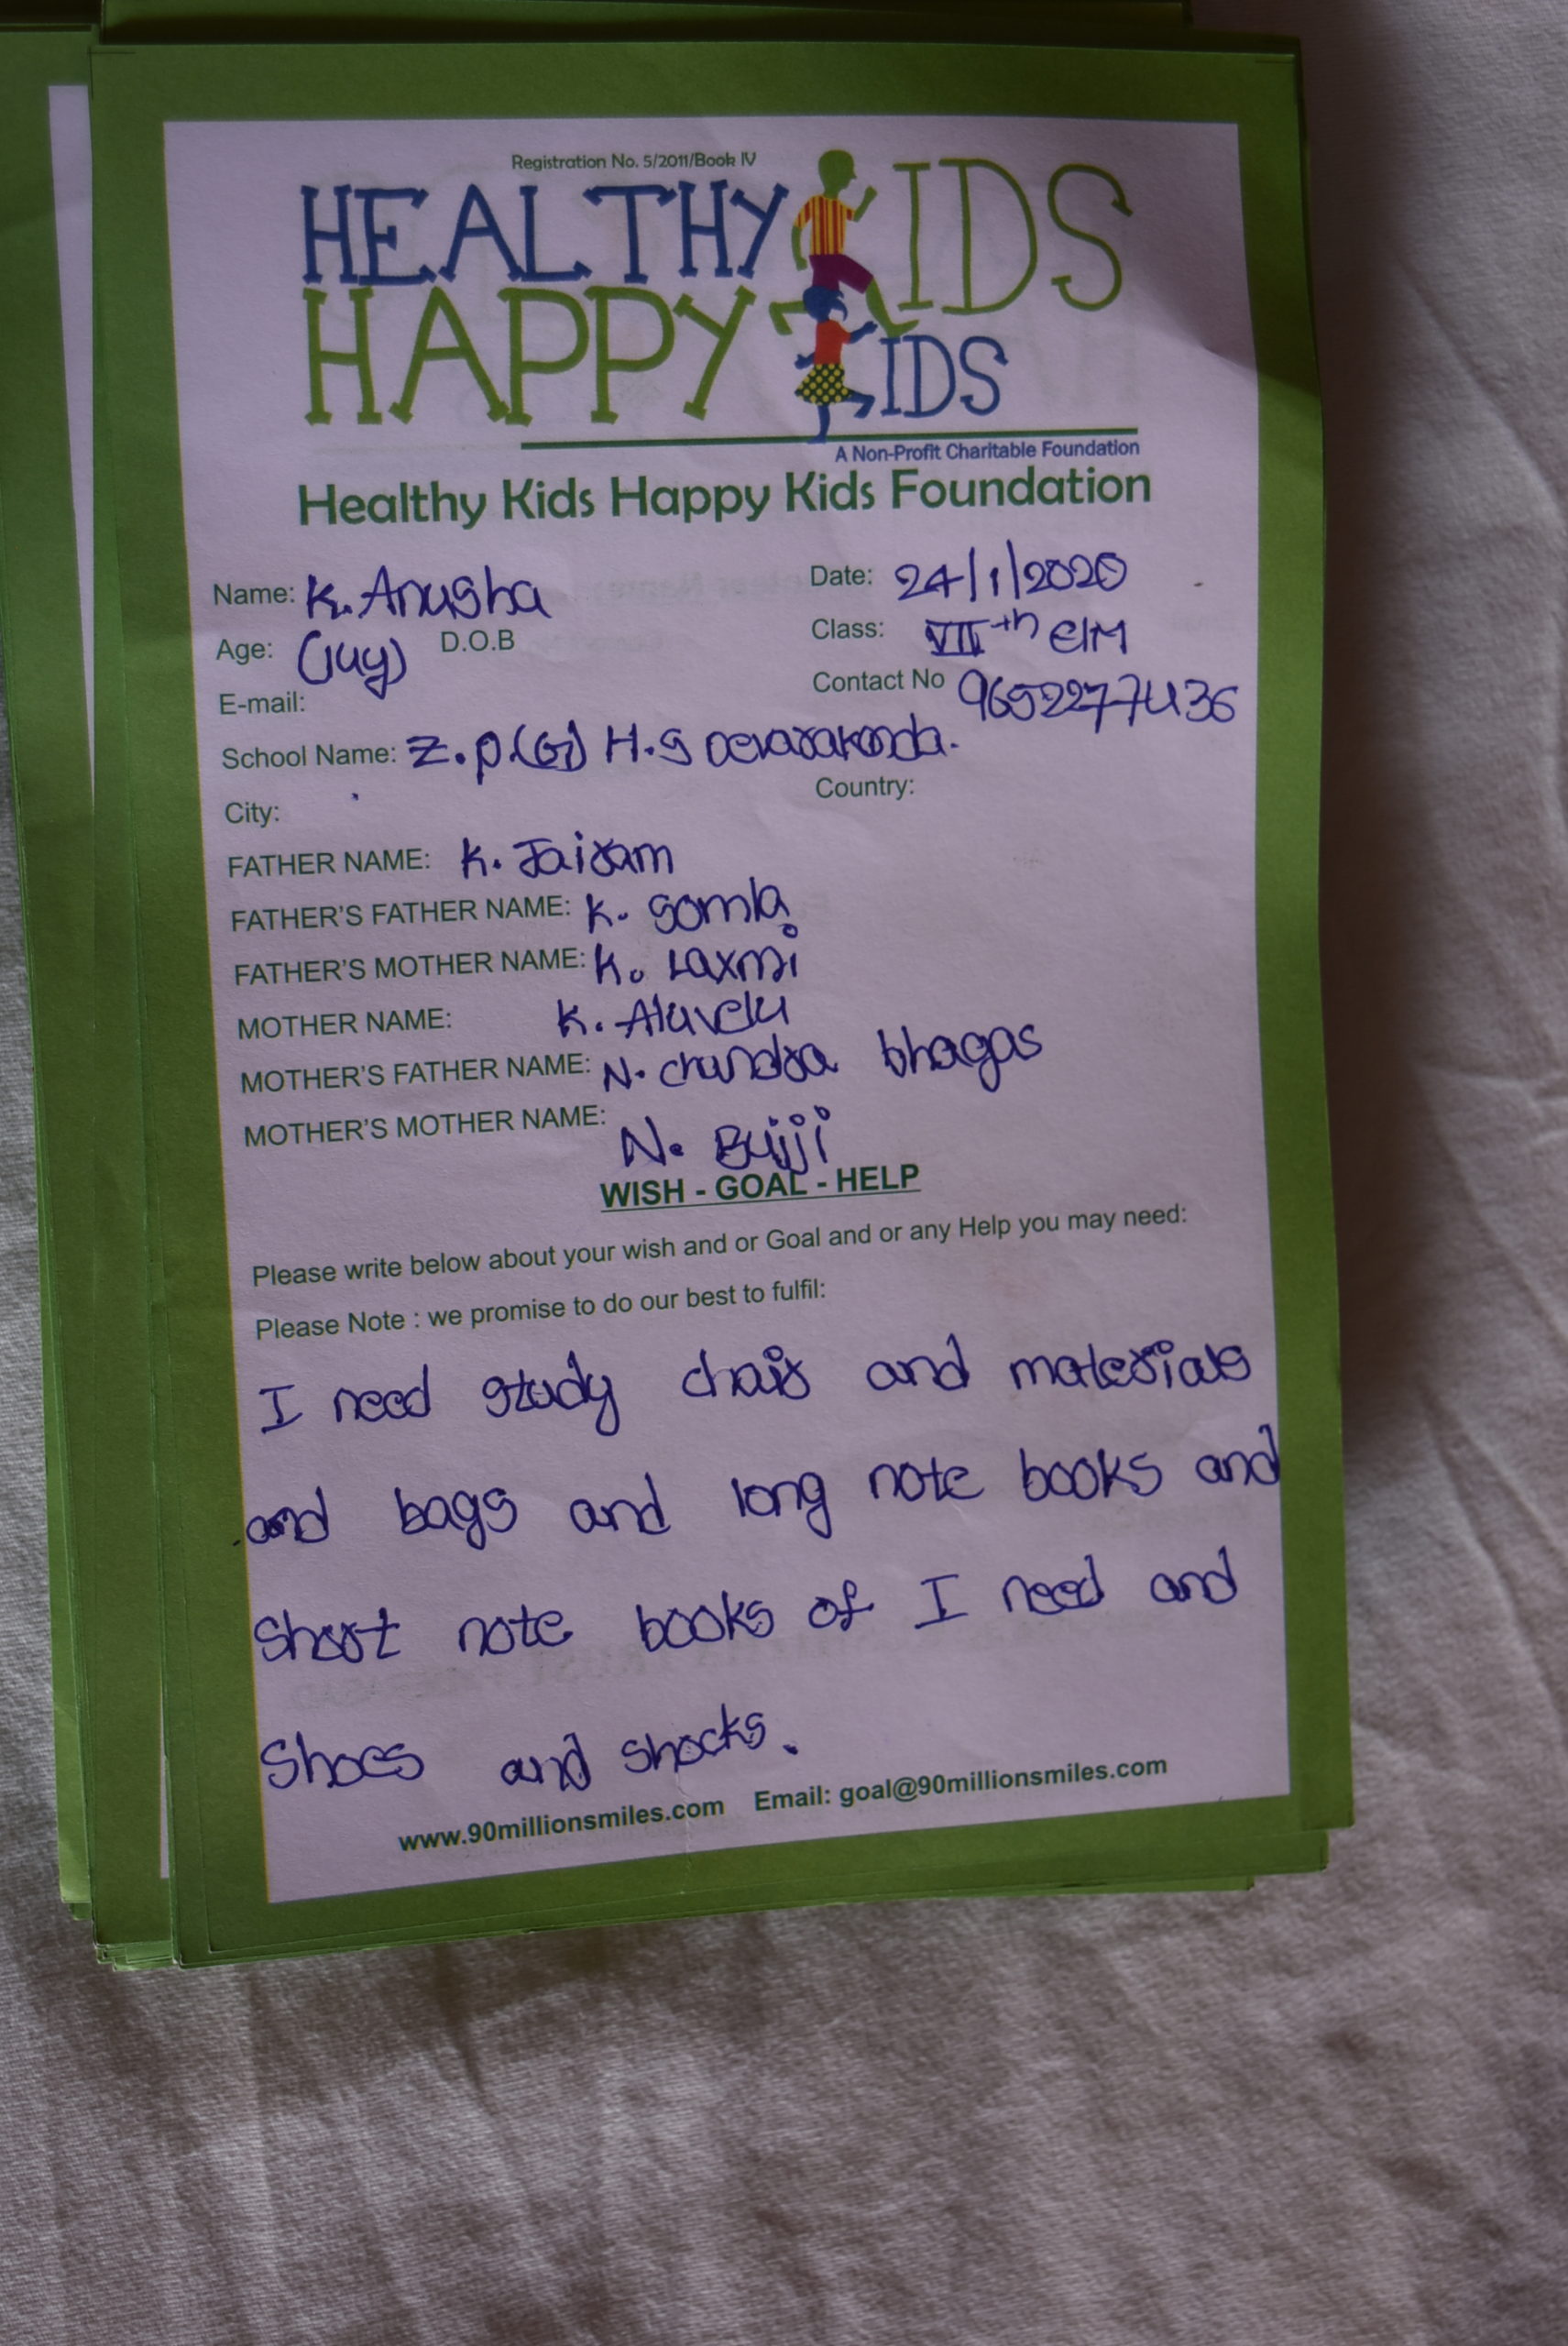 Registration No. 5/2011/Book IV
HEALTHY KIDS
HAPPY KIDS
A Non-Profit Charitable Foundation
Healthy Kids Happy Kids Foundation
Name: K. Anusha Date: 24/1/2020
Age: (14y) D.O.B Class: VIIth E/M
E-mail: Contact No 9652277436
School Name: Z.P.(G) H.S Devarakonda.
City: Country:
FATHER NAME: K. Jairam
FATHER'S FATHER NAME: K. Somla
FATHER'S MOTHER NAME: K. Laxmi
MOTHER NAME: K. Alavelu
MOTHER'S FATHER NAME: N. chandra bhagas
MOTHER'S MOTHER NAME: N. Bujji
WISH - GOAL - HELP
Please write below about your wish and or Goal and or any Help you may need:
Please Note : we promise to do our best to fulfil:
I need study chair and materials
and bags and long note books and
short note books of I need and
Shoes and shocks.
www.90millionsmiles.com Email: goal@90millionsmiles.com